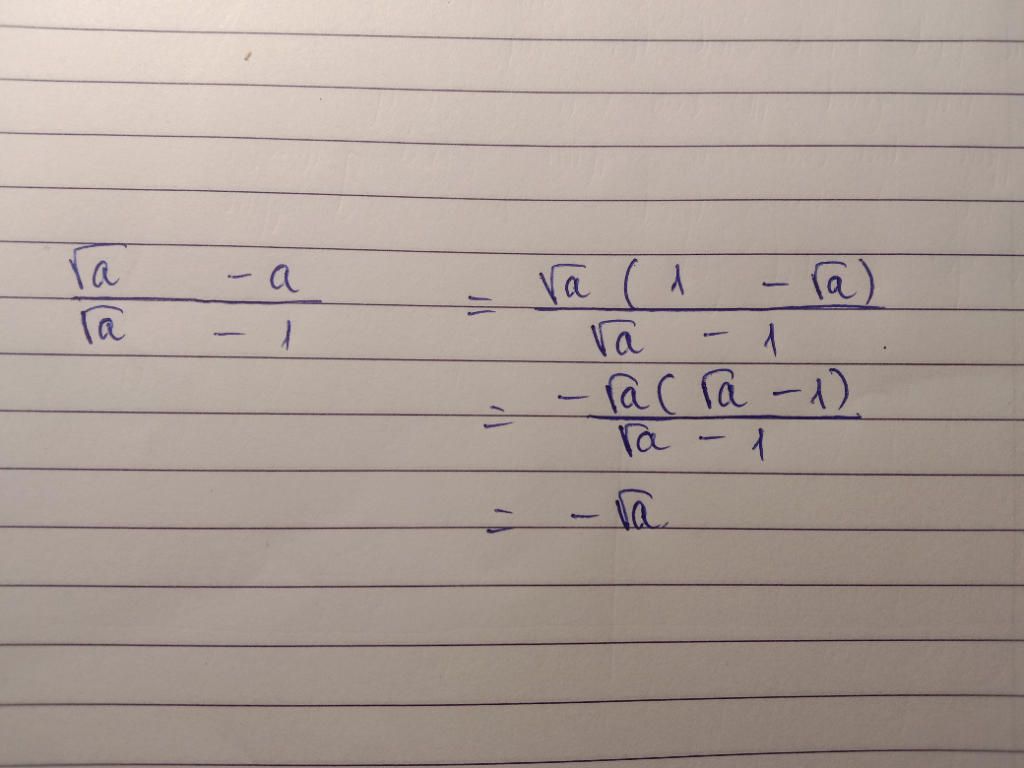 (√a - a)/(√a - 1) = (√a (1 - √a))/(√a - 1)
= (-√a (√a - 1))/(√a - 1)
= -√a